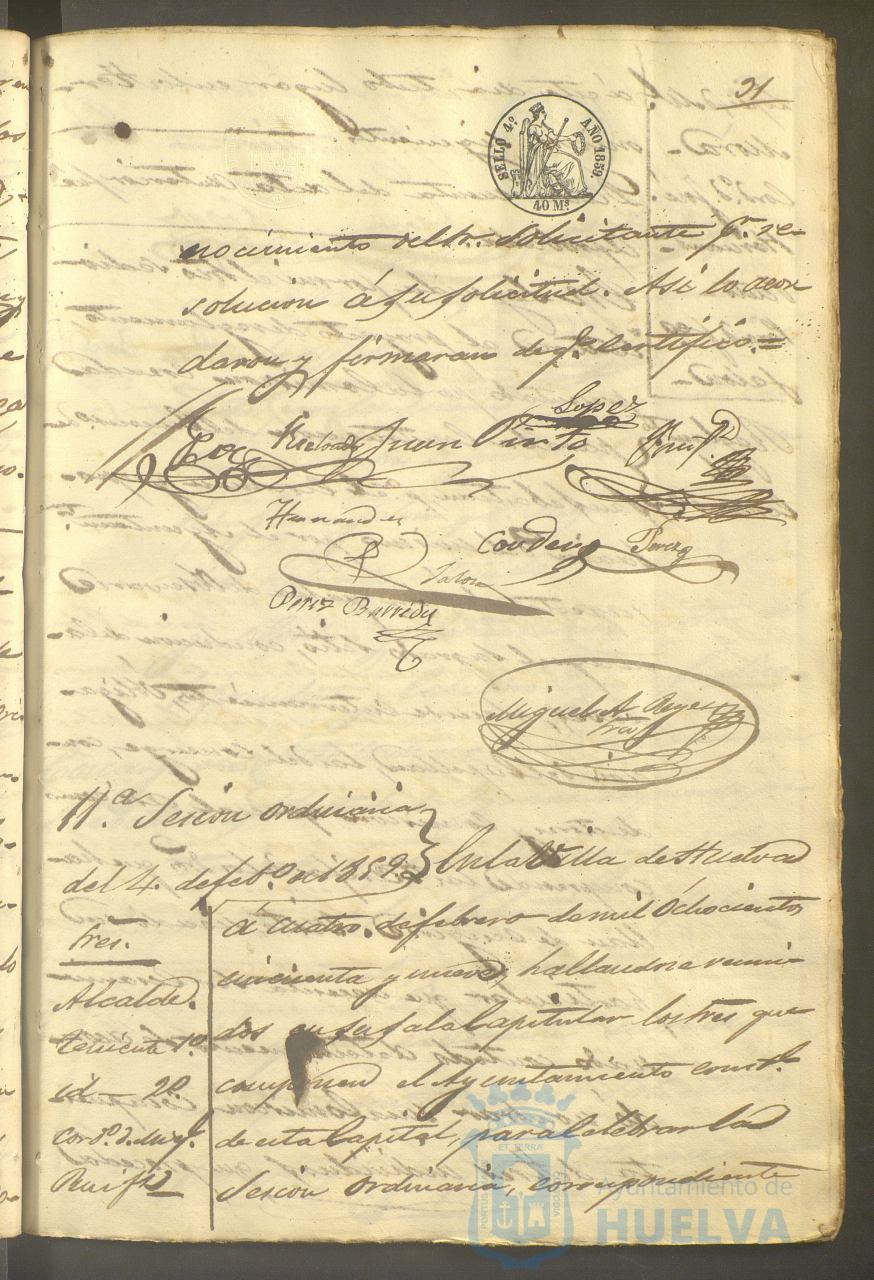 31
SELLO 4º AÑO 1859.
40 Mˢ
nocimiento del Sr. Solicitante pr. re-
solucion á su solicitud. Asi lo acor
daron y firmaran de qe. Certifico.=
Lopez
Juan Pinto
Hernandez
Cordero Perez
Perez Barreda
Miguel A. Reyes
srio
11.ª Sesion ordinaria
del 4. de feb.º de 1859.
En la Villa de Huelva
á cuatro de febrero de mil Ochocientos
cincuenta y nueve, hallandose reuni-
dos en su Sala Capitular los Sres que
componen el Ayuntamiento constl.
de esta Capital, para celebrar la
Sesion Ordinaria, correspondiente
Sres.
Alcalde.
Teniente 1º.
id 2º.
Cor.dº. D. Migl.
Ruiz
Ayuntamiento de
HUELVA